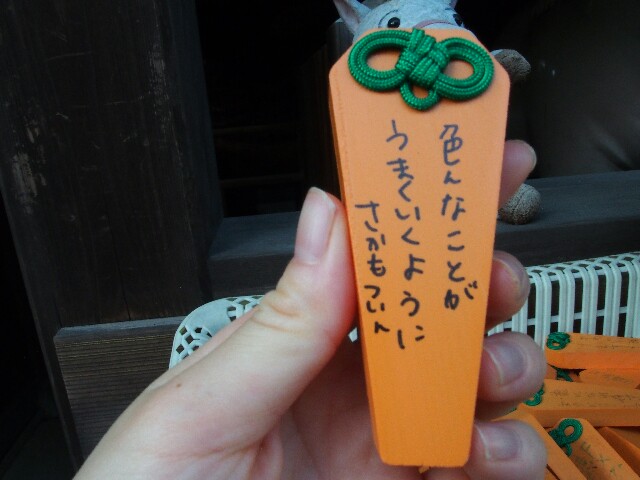 色んなことが
うまくいくように
さかもついん